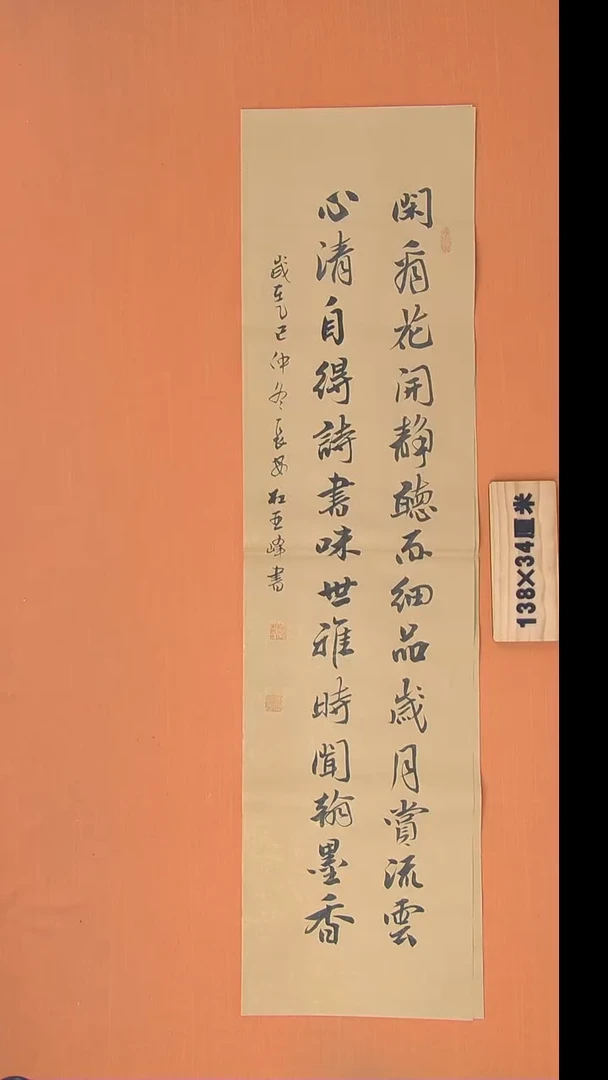 閑看花開静聽雨細品歲月賞流雲
心清自得詩書味世雅時聞翰墨香
歲在乙巳仲冬長安杜亚峰書
138×34厘米